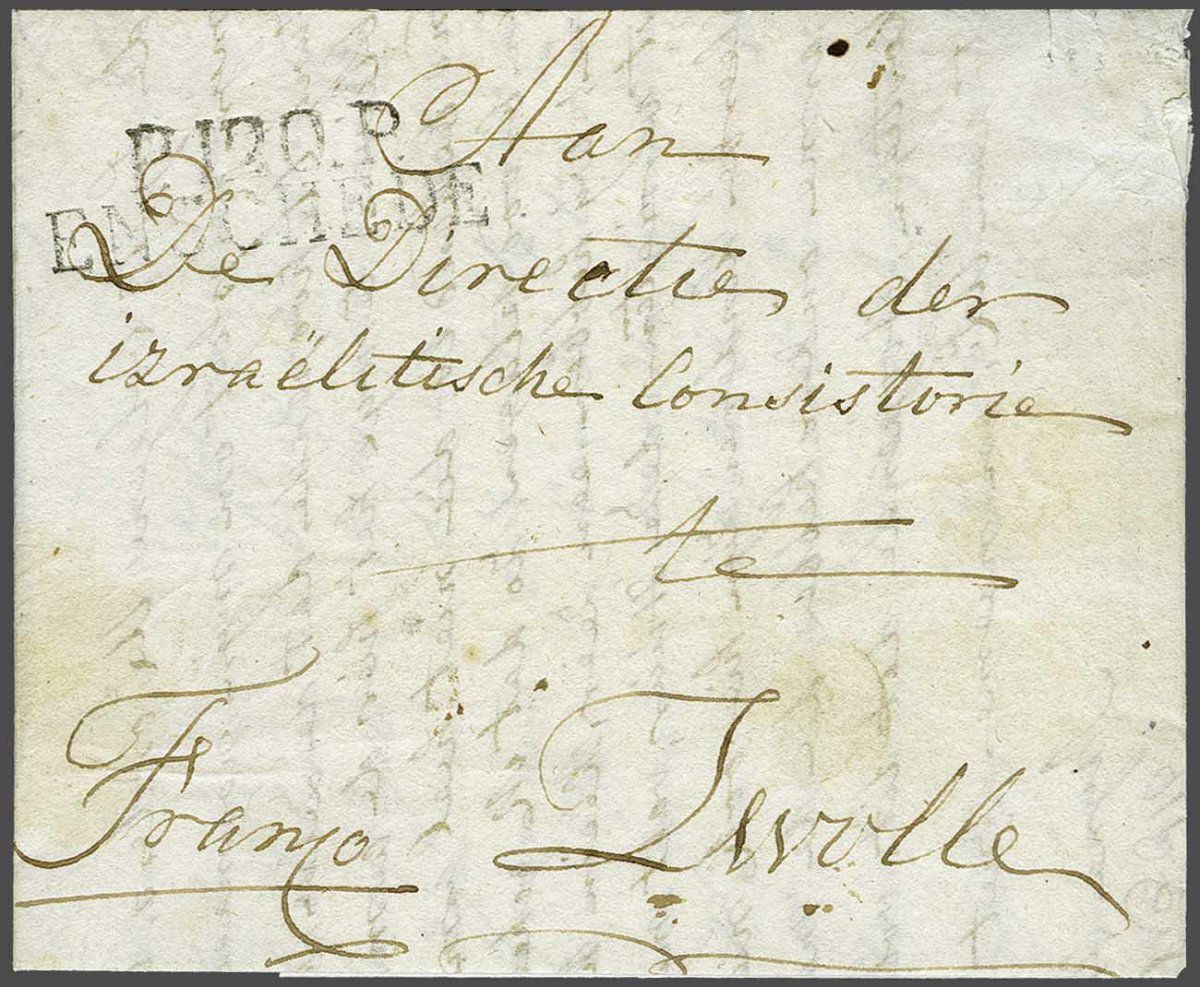 P.120.P.
ENSCHEDE
Aan
De Directie der
izraëlitische Consistorie
te
Franco Zwolle